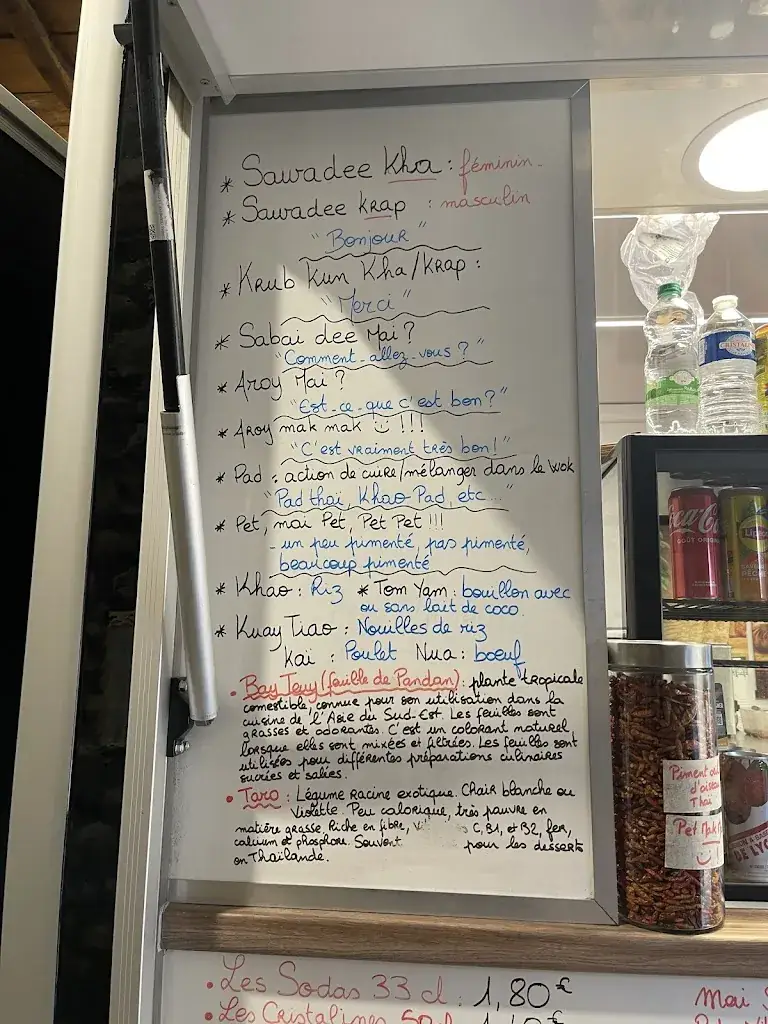 * Sawadee Kha : féminin
* Sawadee Krap : masculin
"Bonjour"
* Krub Kun Kha/Krap :
"Merci"
* Sabai dee Mai ?
"Comment-allez-vous ?"
* Aroy Mai ?
"Est-ce-que c'est bon?"
* Aroy mak mak !!!
"C'est vraiment très bon!"
* Pad : action de cuire/mélanger dans le wok
"Pad thaï, Khao Pad, etc..."
* Pet, mai Pet, Pet Pet !!!
- un peu pimenté, pas pimenté,
beaucoup pimenté
* Khao : Riz * Tom Yam : bouillon avec
ou sans lait de coco.
* Kuay Tiao : Nouilles de riz
Kaï : Poulet Nua : bœuf
• Bay Teuy (feuille de Pandan) : plante tropicale
comestible, connue pour son utilisation dans la
cuisine de l'Asie du Sud-Est. Les feuilles sont
grasses et odorantes. C'est un colorant naturel
lorsque elles sont mixées et filtrées. Les feuilles sont
utilisées pour différentes préparations culinaires
sucrées et salées.
• Taro : Légume racine exotique. Chair blanche ou
violette. Peu calorique, très pauvre en
matière grasse. Riche en fibre, C, B1, et B2, fer,
calcium et phosphore. Souvent pour les desserts
en Thaïlande.
Coca-Cola
GOÛT ORIGINAL
Lipton
CRISTALINE
Piment
d'oiseau
Thaï
Pet Mak
DE LYC
• Les Sodas 33 cl : 1,80€
• Les Cristalines 50cl
Mai